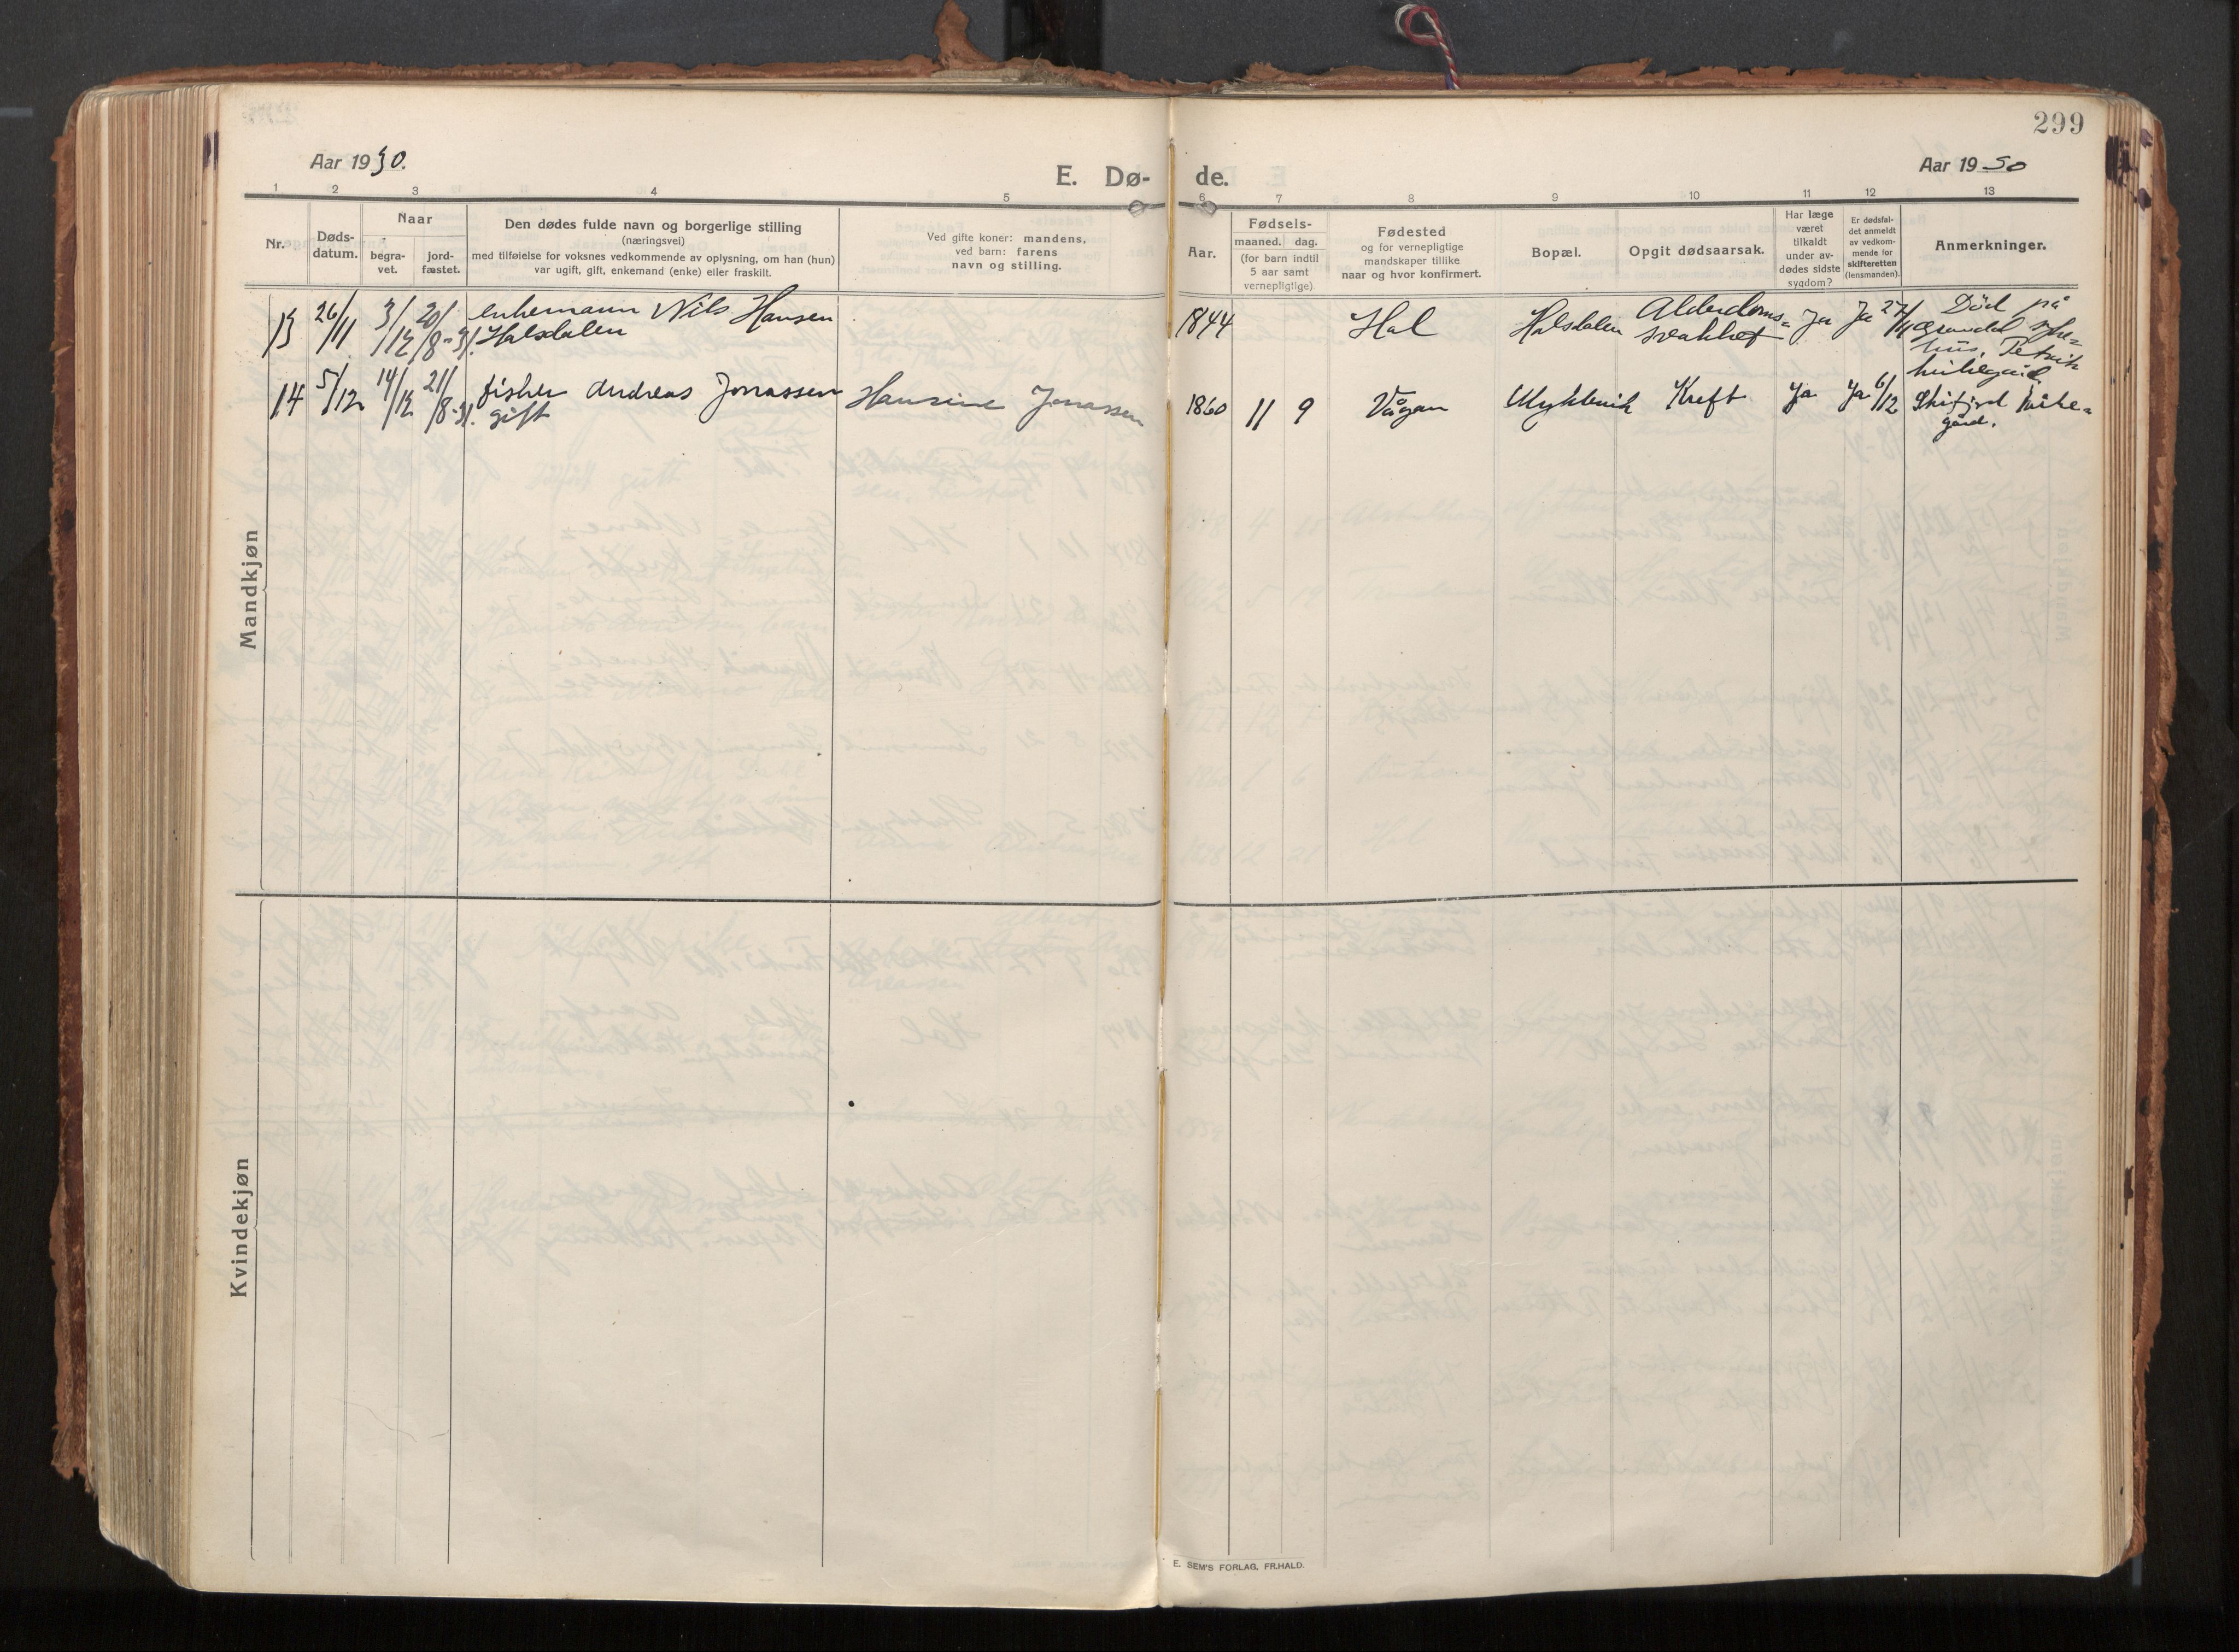 299
Aar 1930.
E. Dø-
de.
Aar 1930
1 2 3 4 5
6 7 8 9 10 11 12 13
Nr.
Døds-
datum.
Naar
begra-
vet.
jord-
fæstet.
Den dødes fulde navn og borgerlige stilling
(næringsvei)
med tilføielse for voksnes vedkommende av oplysning, om han (hun)
var ugift, gift, enkemand (enke) eller fraskilt.
Ved gifte koner: mandens,
ved barn: farens
navn og stilling.
Aar.
Fødsels-
maaned. dag.
(for barn indtil
5 aar samt
vernepligtige)
Fødested
og for vernepligtige
mandskaper tillike
naar og hvor konfirmert.
Bopæl.
Opgit dødsaarsak.
Har læge
været
tilkaldt
under av-
dødes sidste
sygdom?
Er dødsfal-
det anmeldt
av vedkom-
mende for
skifteretten
(lensmanden).
Anmerkninger.
Mandkjøn
13 26/11 3/12 20/8-31. enkemann Nils Hansen
Halsdalen
1844 Hol Halsdalen Alderdoms-
svakhet Ja Ja 27/11 Død på
Gravdal syke-
hus,
kirkegård
14 5/12 14/12 21/8-31. fisker Andreas Jonassen
gift
Hansine Jonassen
1860 11 9 Vågan Myklevik Kreft Ja Ja 6/12 kirke-
gård.
Kvindekjøn
E. SEM'S FORLAG, FR.HALD.